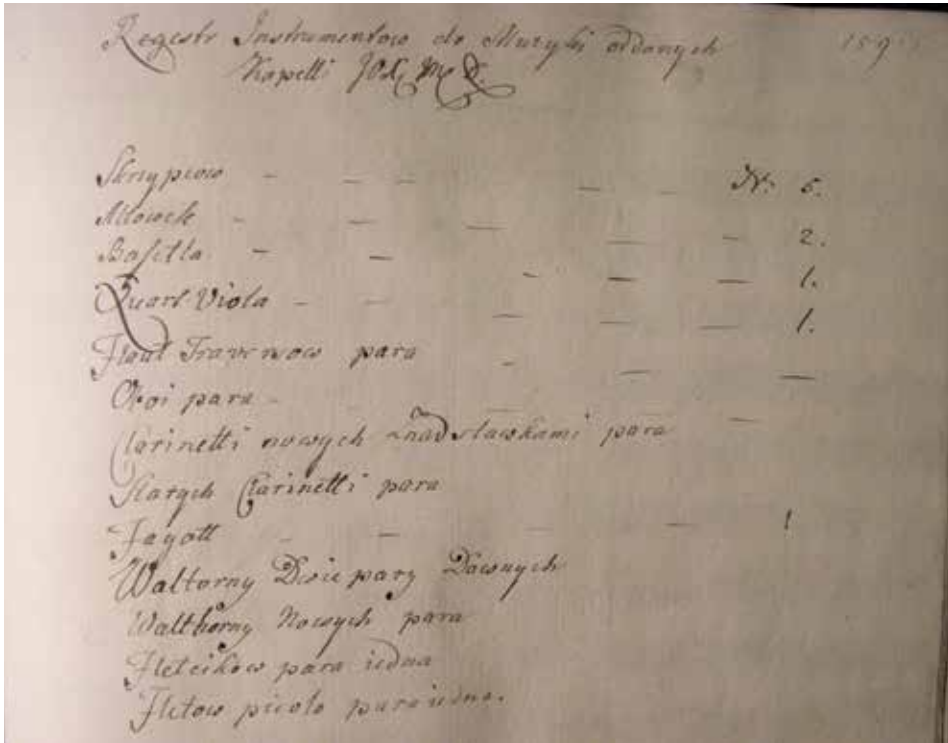 Regestr Instrumentow do Muzyki oddanych
Kapelli JOX M D.
Skrzypiow - - - - - Nr: 5.
Altowek - - - - - 2.
Basetla - - - - - 1.
Quart Viola - - - - - 1.
Flaut Traversow para - - -
Oboi para - - -
Clarinetti nowych z nadstawkami para
Starych Clarinetti para
Fagott - - - - 1
Waltorny Dwie pary Dawnych
Walthorny Nowych para
Fletcikow para iedna
Fletow picolo para iedna.